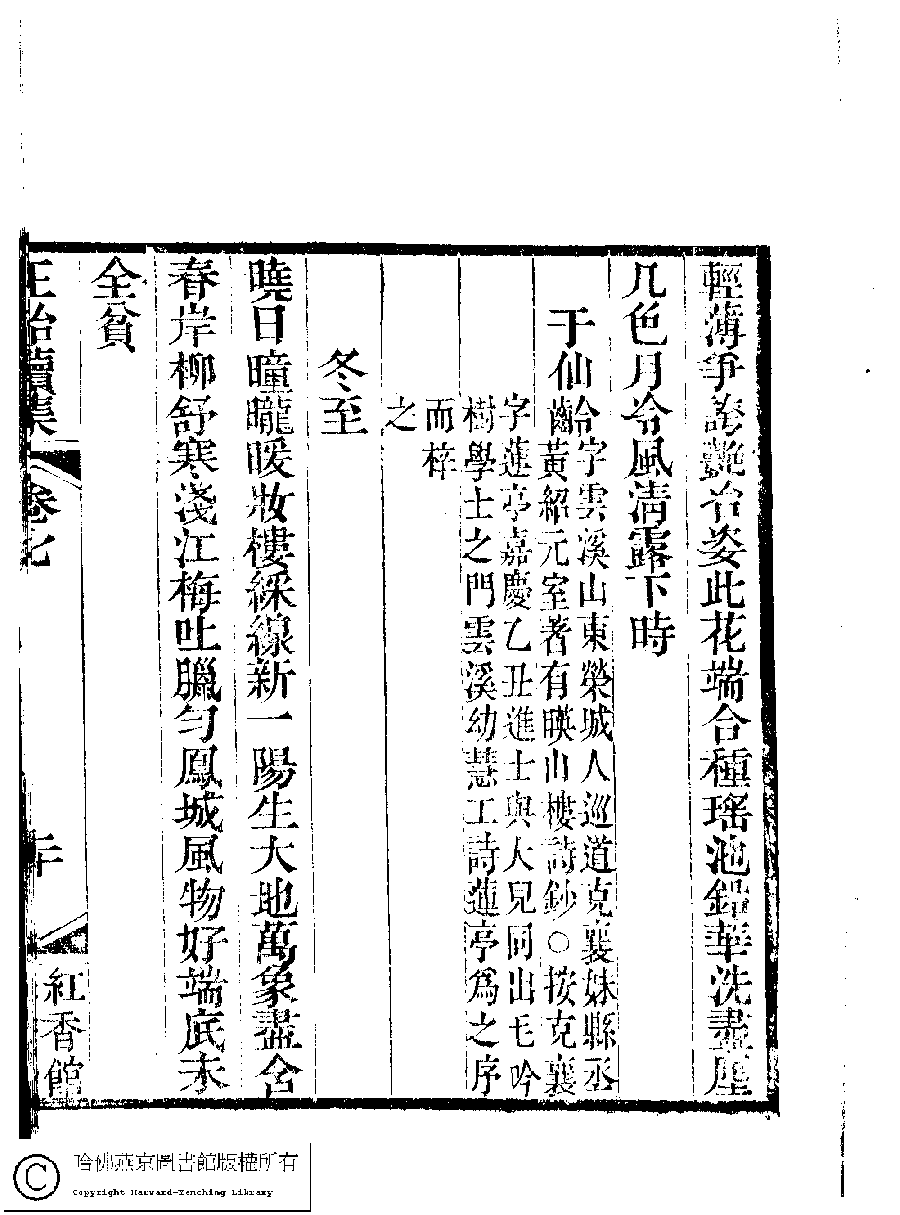 輕薄爭誇艷冶姿此花端合種瑤池鉛華洗盡塵
凡色月冷風清露下時
于仙齡
字雲溪山東榮城人巡道克襄妹縣丞
黃紹元室著有暎山樓詩鈔○按克襄
字蓮亭嘉慶乙丑進士與大兒同出毛吟
樹學士之門雲溪幼慧工詩蓮亭為之序
而梓
之
冬至
曉日曈曨暖妝樓綵線新一陽生大地萬象盡含
春岸柳舒寒淺江梅吐臘勻鳳城風物好端底未
全貧
正始續集
卷七
二十
紅香館
哈佛燕京圖書館版權所有
Copyright Harvard-Yenching Library